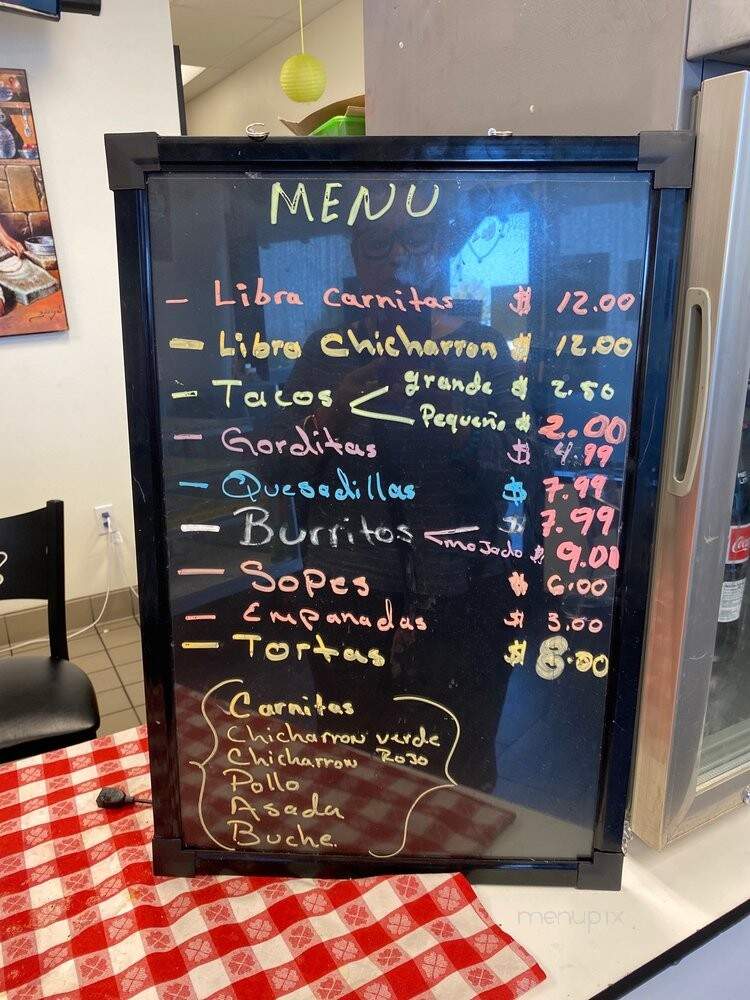 MENU
- Libra Carnitas $ 12.00
- Libra Chicharron $ 12.00
- Tacos < grande $ 2.50
Pequeño $ 2.00
- Gorditas $ 4.99
- Quesadillas $ 7.99
- Burritos < $ 7.99
mojado $ 9.00
- Sopes $ 6.00
- Empanadas $ 3.00
- Tortas $ 8.00
Carnitas
Chicharron verde
Chicharron Rojo
Pollo
Asada
Buche.
menupix